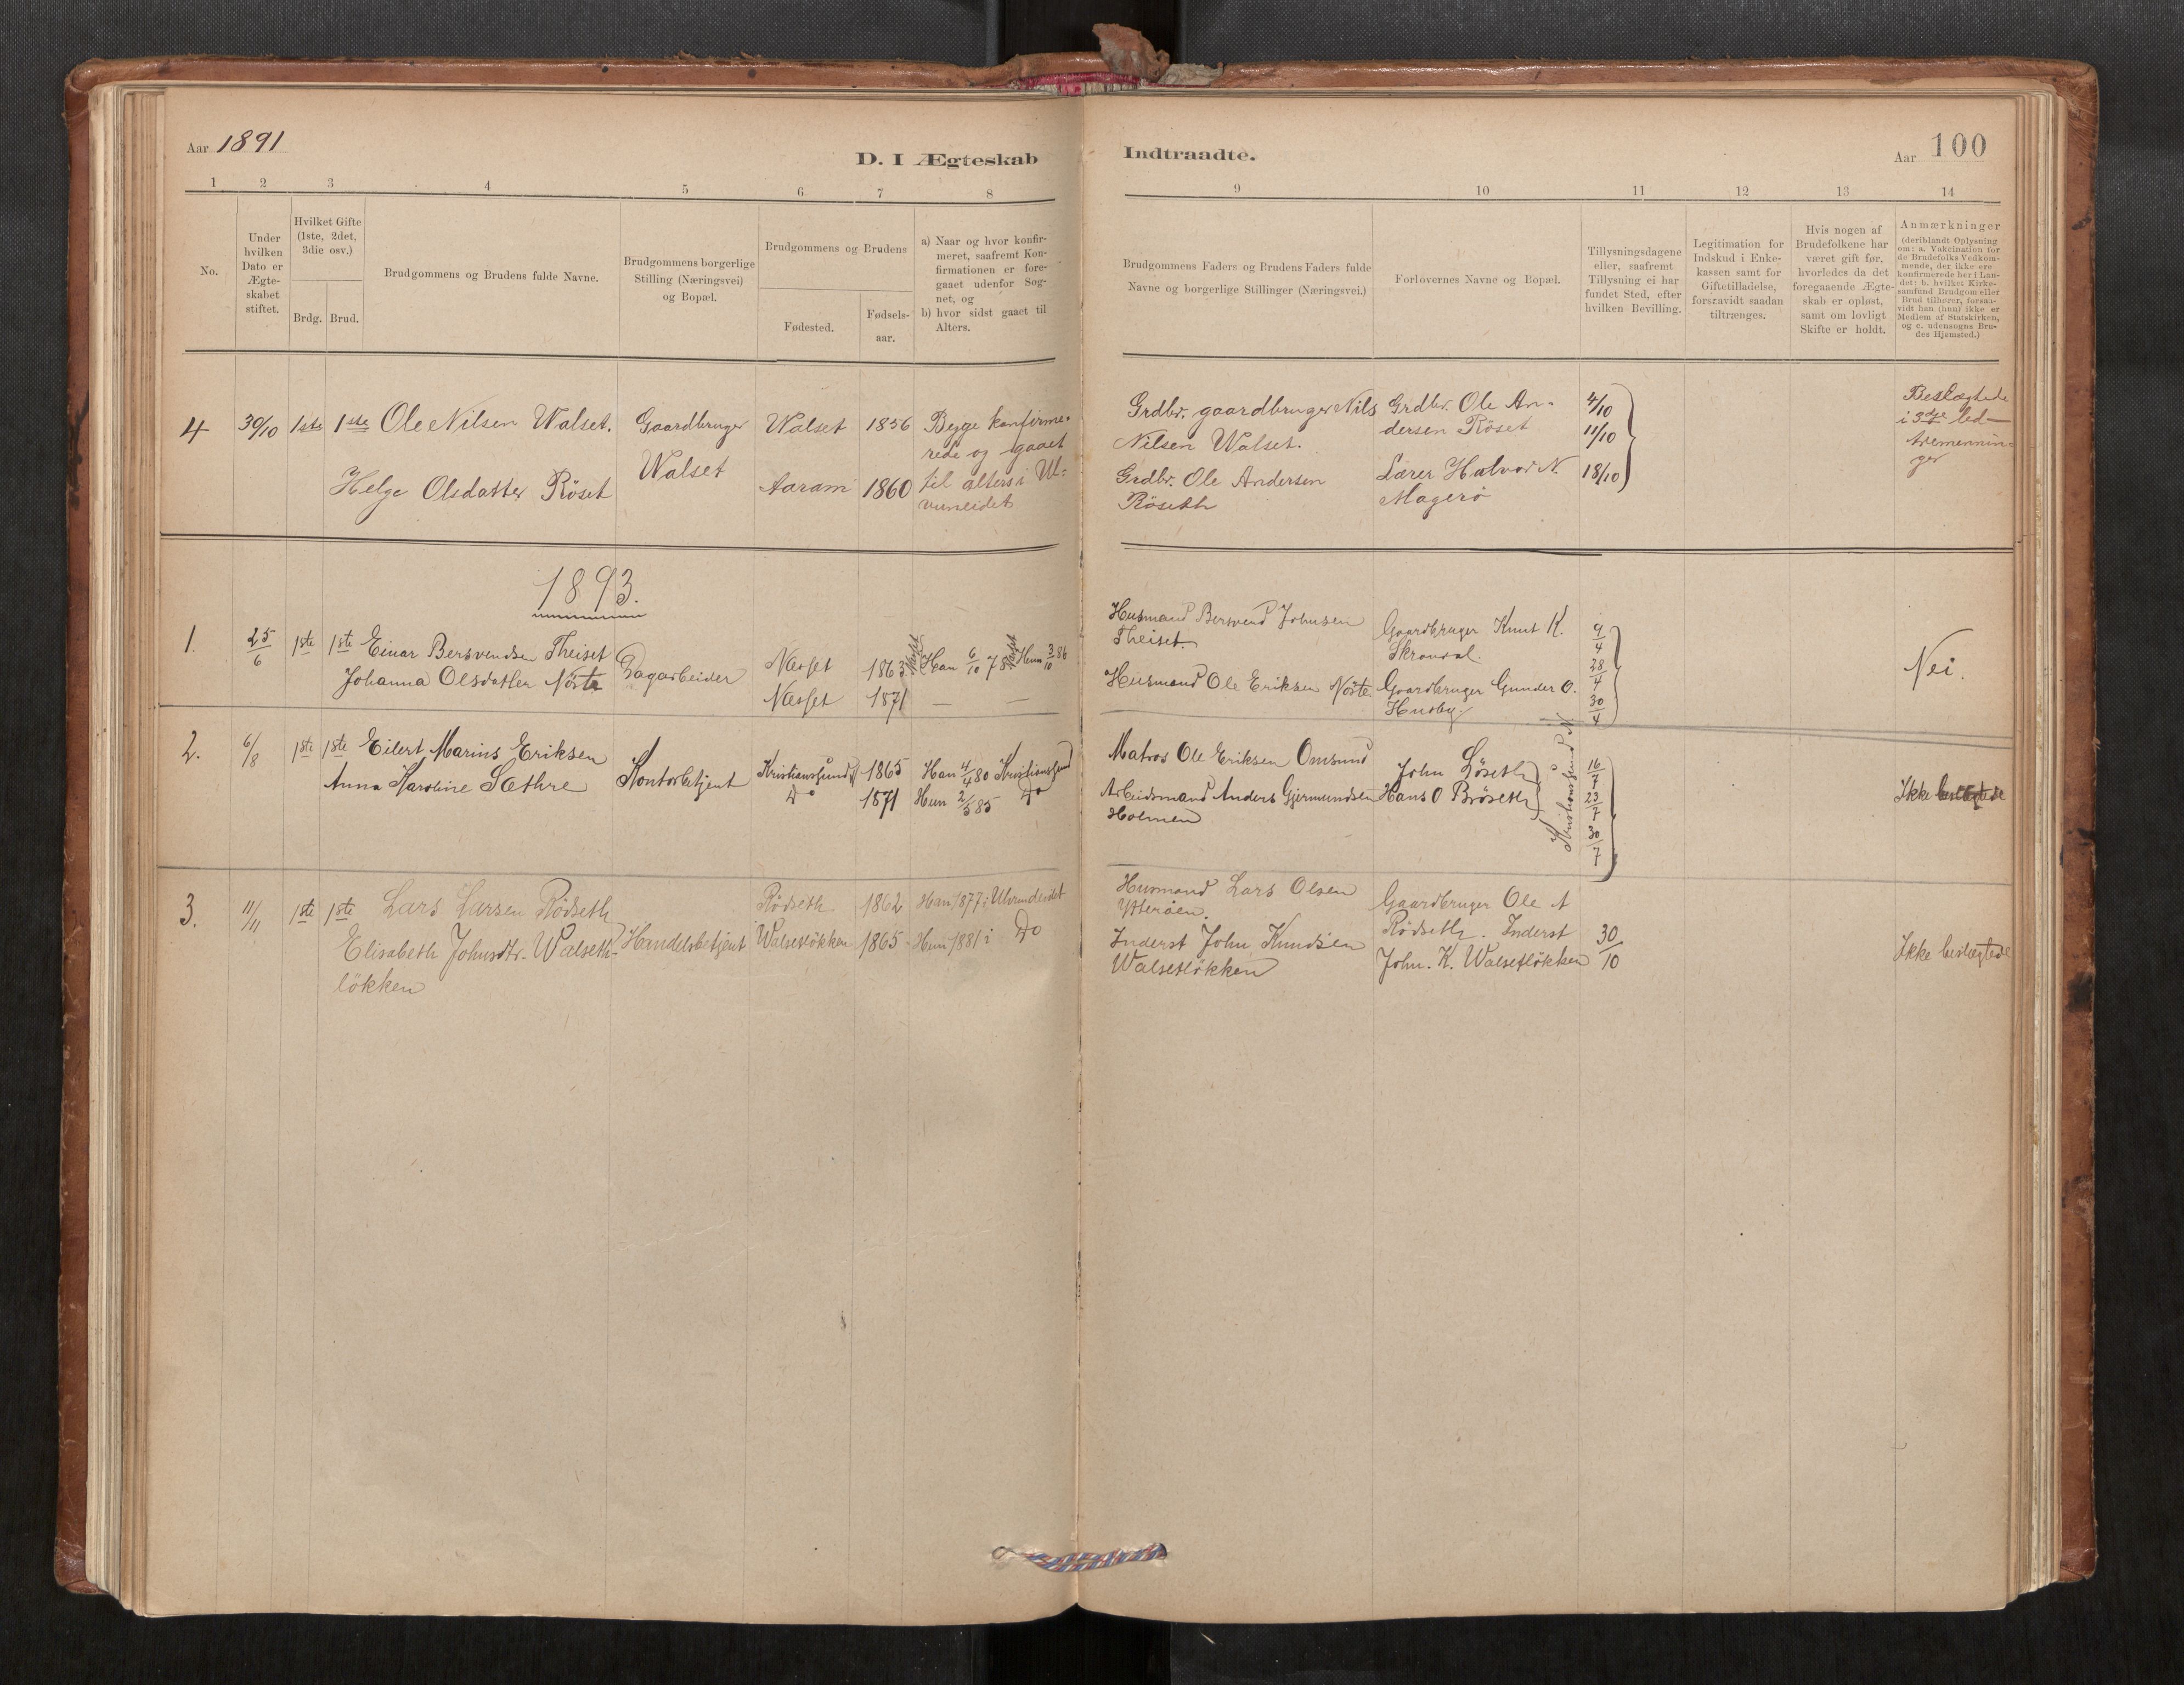 Aar 1891
D. I Ægteskab
Indtraadte.
Aar
100
1 2 3 4 5 6 7 8
9 10 11 12 13 14
No.
Under hvilken Dato er Ægte-skabet stiftet.
Hvilket Gifte (1ste, 2det, 3die osv.)
Brdg. Brud.
Brudgommens og Brudens fulde Navne.
Brudgommens borgerlige Stilling (Næringsvei) og Bopæl.
Brudgommens og Brudens
Fødested.
Fødsels-aar.
a) Naar og hvor konfir-meret, saafremt Kon-firmationen er fore-gaaet udenfor Sog-net, og
b) hvor sidst gaaet til Alters.
Brudgommens Faders og Brudens Faders fulde
Navne og borgerlige Stillinger (Næringsvei.)
Forlovernes Navne og Bopæl.
Tillysningsdagene eller, saafremt Tillysning ei har fundet Sted, efter hvilken Bevilling.
Legitimation for Indskud i Enke-kassen samt for Giftetilladelse, forsaavidt saadan tiltrænges.
Hvis nogen af Brudefolkene har været gift før, hvorledes da det foregaaende Ægte-skab er opløst, samt om lovligt Skifte er holdt.
Anmærkninger
(deriblandt Oplysning om: a. Vakcination for de Brudefolks Vedkom-mende, der ikke ere konfirmerede her i Lan-det; b. hvilket Kirke-samfund Brudgom eller Brud tilhører, forsaa-vidt han (hun) ikke er Medlem af Statskirken, og c. udensogns Bru-des Hjemsted.)
4 30/10 1ste 1ste Ole Nilsen Walset. Gaardbruger Walset 1856 Begge konfirme-
rede og gaaet
Helge Olsdatter Röset Walset Aaram 1860 til alters i Ul-
vundeidet
Grdbr. gaardbruger Nils Grdbr. Ole An- 4/10 Beslægtede
Nilsen Walset. dersen Röset 11/10 i 3dje led-
Grdbr. Ole Andersen Lærer Halvor N. 18/10 tremennin-
Röseth Magerö ger
1893.
1. 25/6 1ste 1ste Einar Bersvendsen Theiset Dagarbeider Næsset 1863 Næsset Han 6/10 78 Næsset Hun 3/10 86
Johanna Olsdatter Nöste Næsset 1871 — —
Husmand Bersvend Johnsen Gaardbruger Knut K. 9/4
Theiset. Skrondal. 28/4 Nei.
Husmand Ole Eriksen Nöste Gaardbruger Gunder O. 30/4
Husby.
2. 6/8 1ste 1ste Eilert Marius Eriksen Kontorbetjent Kristianssund N 1865 Han 4/4 80 Kristianssund
Anna Karoline Sæthre Do 1871 Hun 2/5 85 Do
Matros Ole Eriksen Omsund John Löseth 16/7
Arbeidsmand Anders Gjermundsen Hans O Bröseth Kristianssund N 23/7 Ikke beslægtede
Holmen 30/7
3. 11/11 1ste 1ste Lars Larsen Rödseth Rödseth 1862 Han 1877 i Ulvundeidet
Elisabeth Johnsdtr. Walseth- Handelsbetjent Walsetlökken 1865 Hun 1881 i Do
lökken
Husmand Lars Olsen Gaardbruger Ole A
Ytteröen. Rödseth. Inderst 30/10
Inderst John Knudsen John. K. Walsetlökken Ikke beslægtede
Walsetlökken